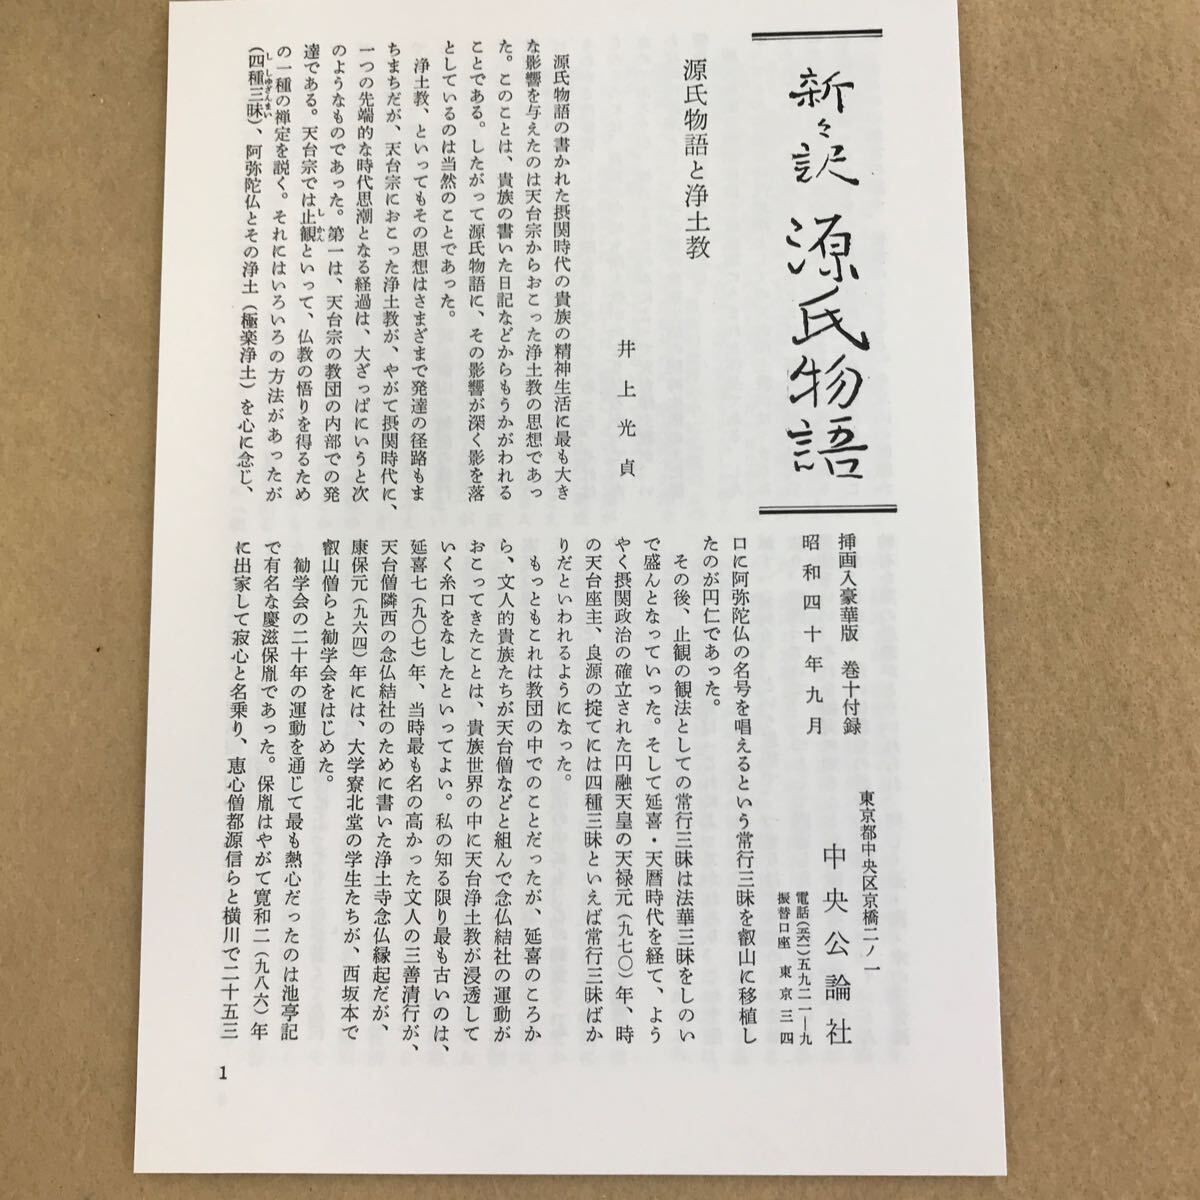 新々訳 源氏物語
挿画入豪華版 巻十付録
昭和四十年九月
東京都中央区京橋二ノ一
中央公論社
電話(五六一)五九二一―九
振替口座 東京三四
源氏物語と浄土教
井上光貞
源氏物語の書かれた摂関時代の貴族の精神生活に最も大き
な影響を与えたのは天台宗からおこった浄土教の思想であっ
た。このことは、貴族の書いた日記などからもうかがわれる
ことである。したがって源氏物語に、その影響が深く影を落
としているのは当然のことであった。
浄土教、といってもその思想はさまざまで発達の径路もま
ちまちだが、天台宗におこった浄土教が、やがて摂関時代に、
一つの先端的な時代思潮となる経過は、大ざっぱにいうと次
のようなものであった。第一は、天台宗の教団の内部での発
達である。天台宗では止観(しかん)といって、仏教の悟りを得るため
の一種の禅定を説く。それにはいろいろの方法があったが
(四種三昧(ししゅざんまい))、阿弥陀仏とその浄土(極楽浄土)を心に念じ、
口に阿弥陀仏の名号を唱えるという常行三昧を叡山に移植し
たのが円仁であった。
その後、止観の観法としての常行三昧は法華三昧をしのい
で盛んとなっていった。そして延喜・天暦時代を経て、よう
やく摂関政治の確立された円融天皇の天禄元(九七〇)年、時
の天台座主、良源の掟てには四種三昧といえば常行三昧ばか
りだといわれるようになった。
もっともこれは教団の中でのことだったが、延喜のころか
ら、文人的貴族たちが天台僧などと組んで念仏結社の運動が
おこってきたことは、貴族世界の中に天台浄土教が浸透して
いく糸口をなしたといってよい。私の知る限り最も古いのは、
延喜七(九〇七)年、当時最も名の高かった文人の三善清行が、
天台僧隣西の念仏結社のために書いた浄土寺念仏縁起だが、
康保元(九六四)年には、大学寮北堂の学生たちが、西坂本で
叡山僧らと勧学会をはじめた。
勧学会の二十年の運動を通じて最も熱心だったのは池亭記
で有名な慶滋保胤であった。保胤はやがて寛和二(九八六)年
に出家して寂心と名乗り、恵心僧都源信らと横川で二十五三
1